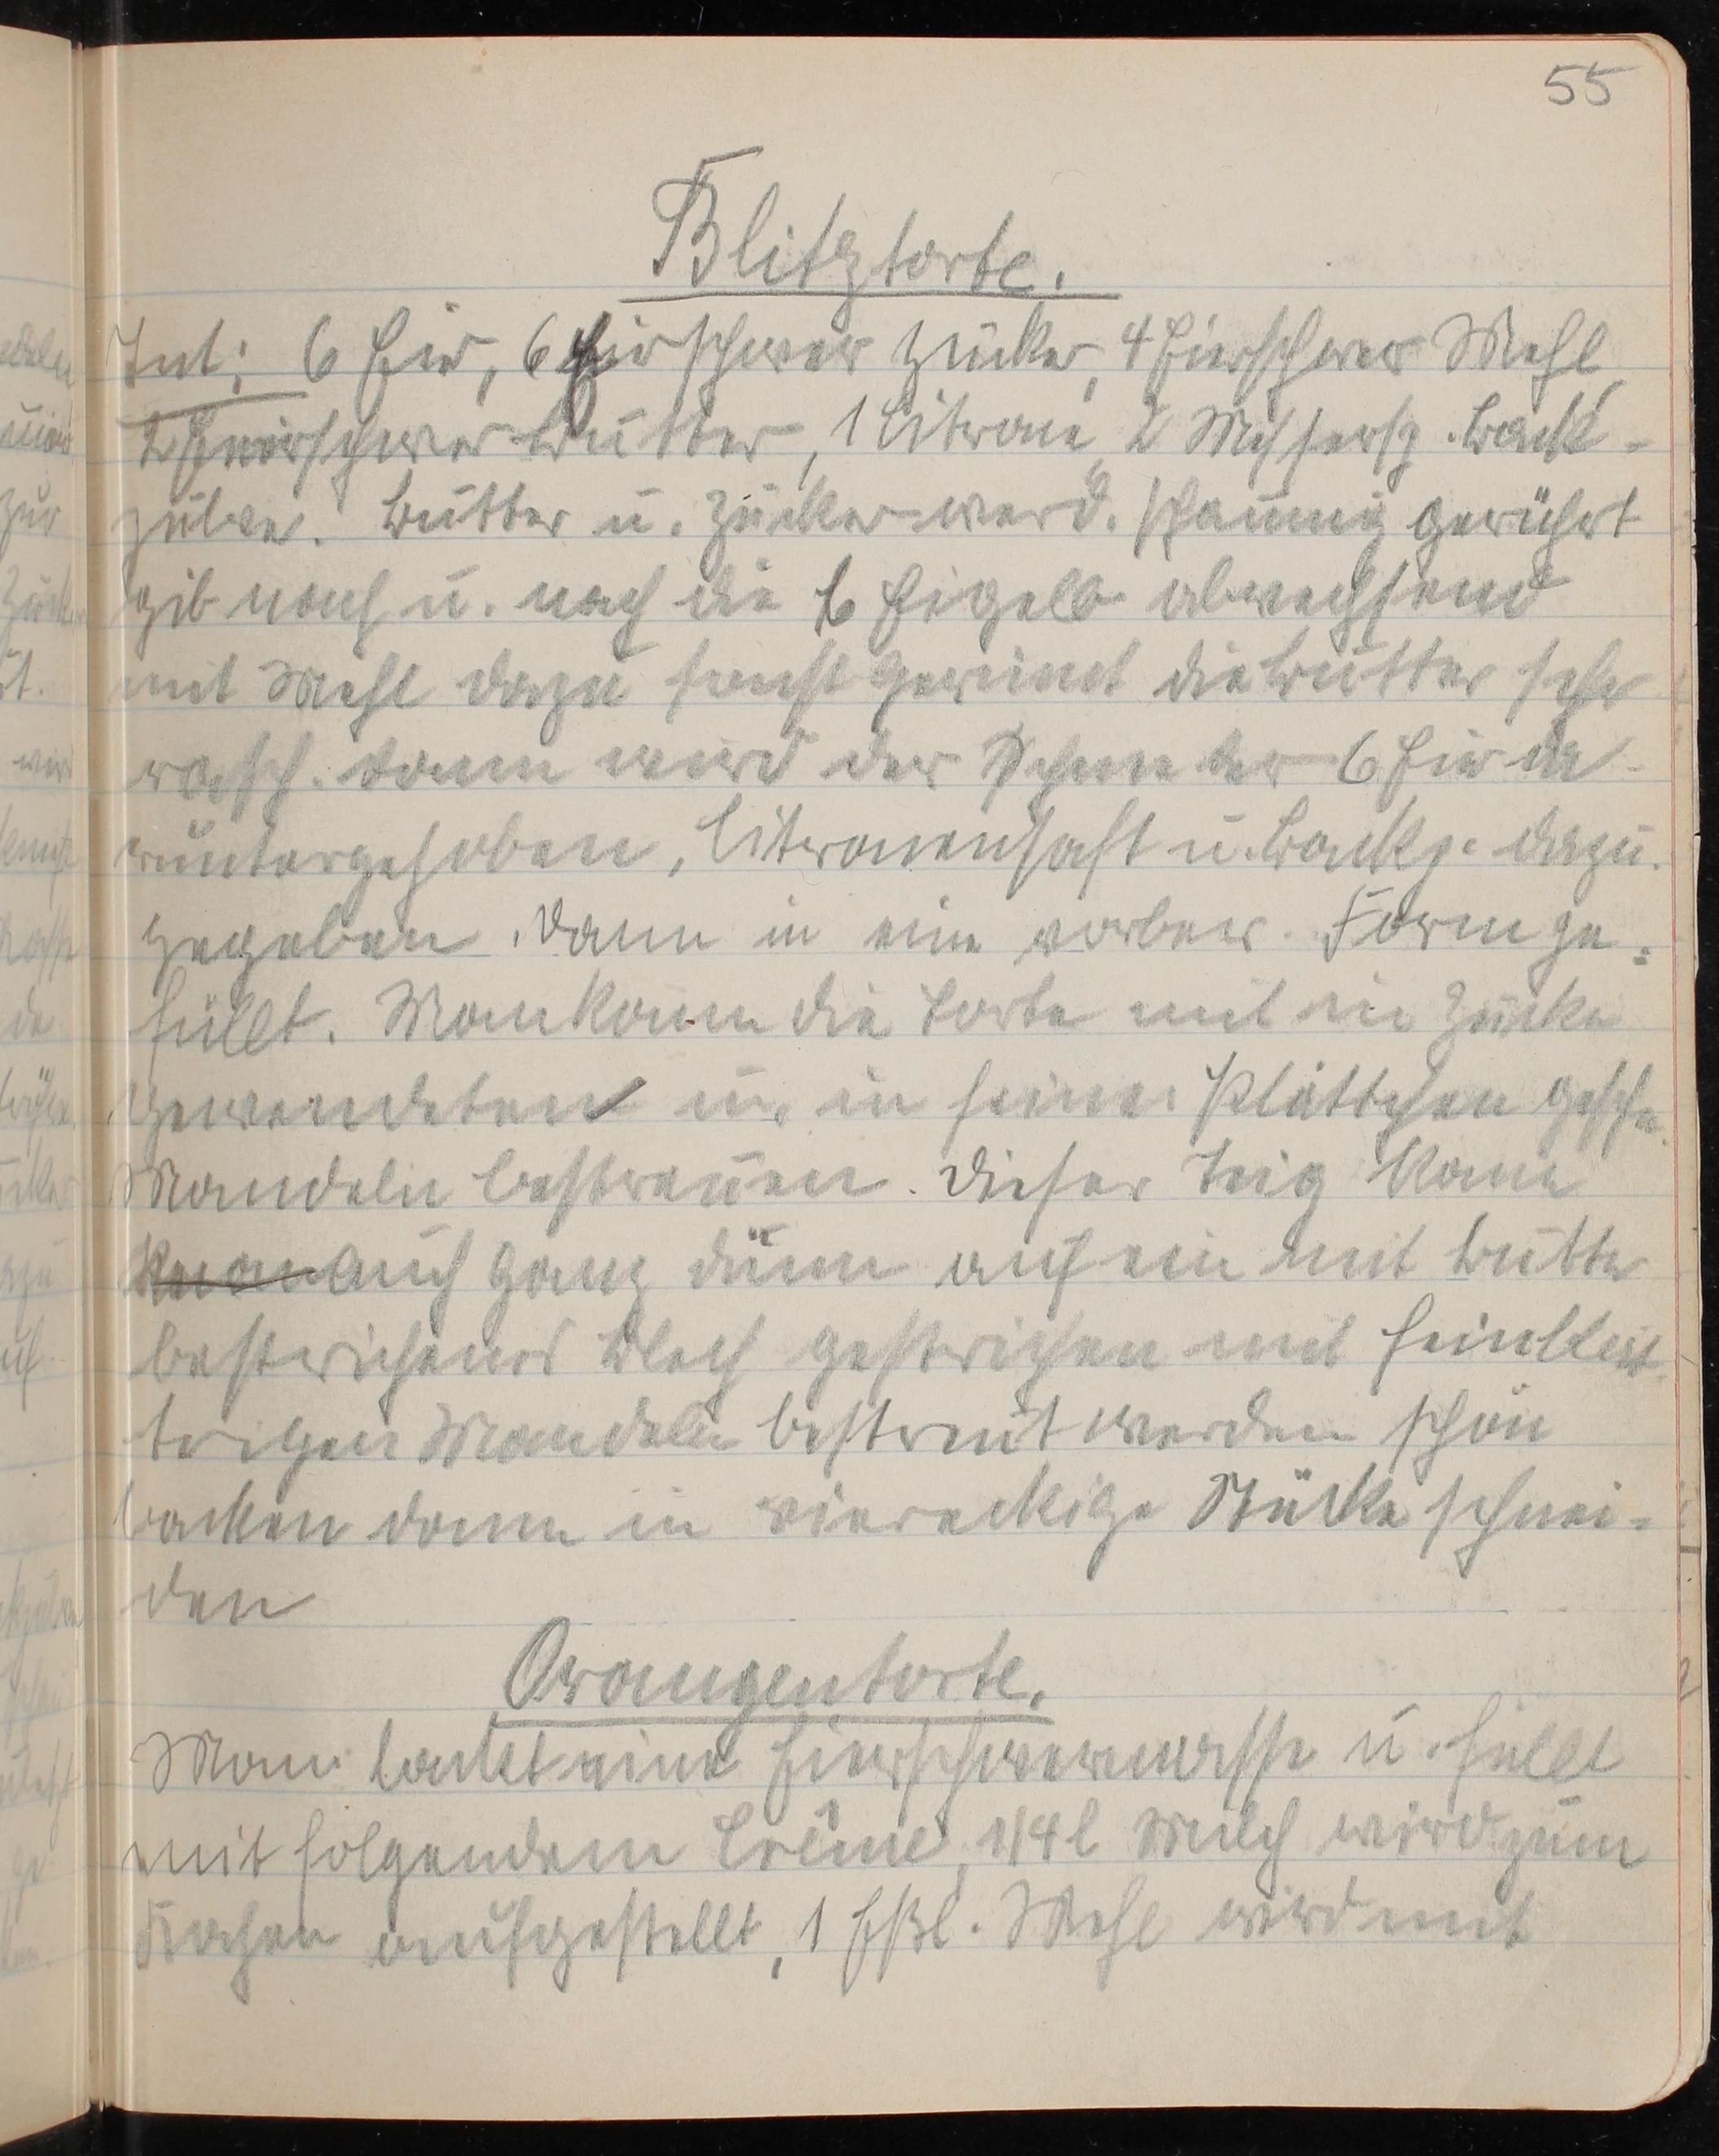 55
Blitztorte.
Zut: 6 Eier, 6 Eierschwer Zucker, 4 Eierschwer Mehl,
2 Eierschwer Butter, 1 Citrone 2 Messersp. Back-
pulver. Butter u. Zucker werd. schaumig gerührt
gib nach u. nach die 6 Eigelb abwechsend
mit Mehl dazu sonst gerinnt die Butter sehr
rasch. Dann wird der Schnee der 6 Eier da-
runtergehoben, Citronensaft u. Backp. dazu.
gegeben. Dann in eine vorber. Form ge-
füllt. Man kann die Torte mit in Zucker
gewendeten u. in feine Plättchen gesch.
Mandeln bestreuen. Dieser Teig kann
auch ganz dünn auf ein mit Butter
bestrichenes Blech gestrichen mit feinblät-
trigen Mandeln bestreut werden schön
backen dann in viereckige Stücke schnei-
den
Orangentorte.
Man backt eine Eierschwermasse u. füllt
mit folgendem Crême, 1/4 l Milch wird zum
Kochen aufgestellt, 1 Eßl. Mehl wird mit